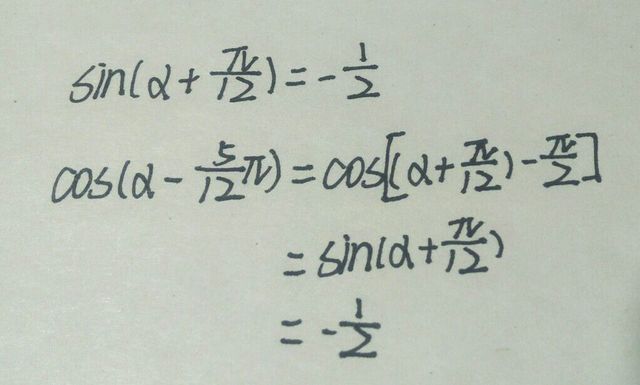 sin(α + π/12) = -1/2
cos(α - 5/12 π) = cos[(α + π/12) - π/2]
= sin(α + π/12)
= -1/2